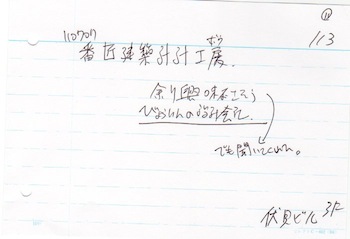 ⑪
113
番匠建築設計工房
余り興味なさそう
びょういんの設計会社
でも聞いてくれた。
伏見ビル 3F